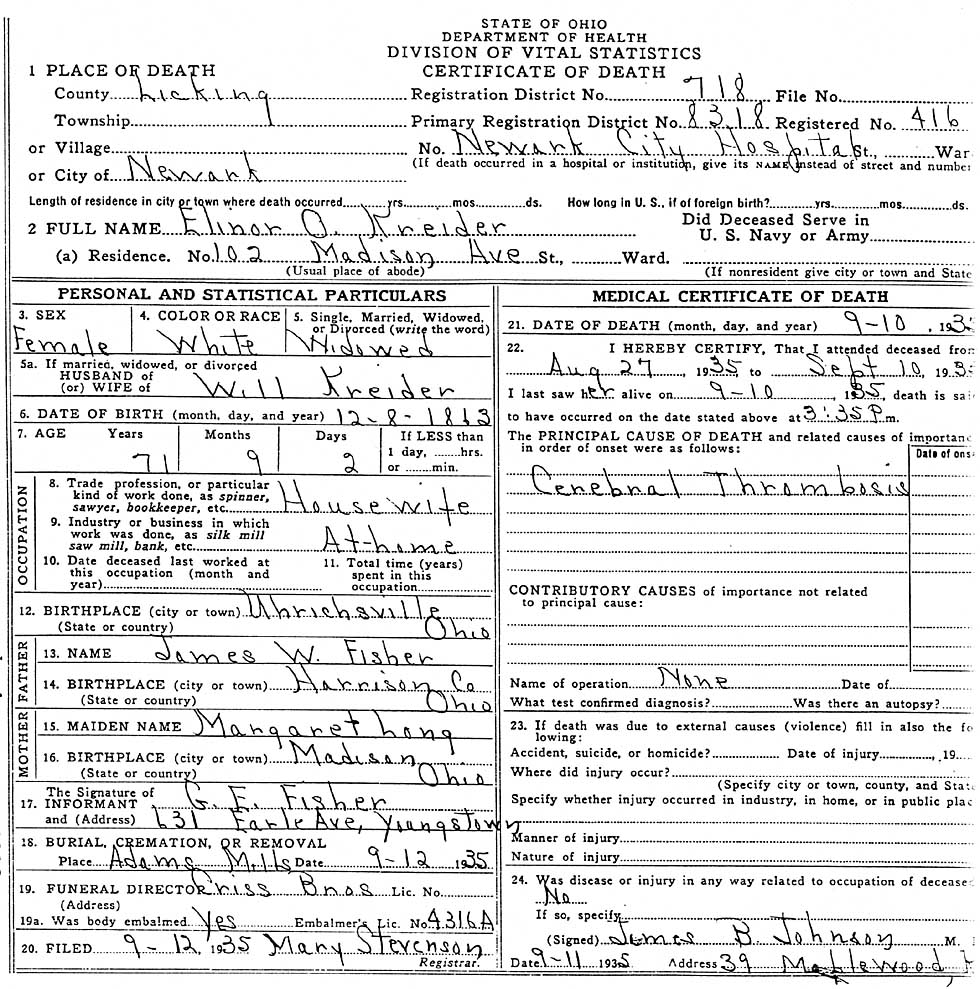 STATE OF OHIO
DEPARTMENT OF HEALTH
DIVISION OF VITAL STATISTICS
CERTIFICATE OF DEATH
1 PLACE OF DEATH
County Licking Registration District No. 718 File No.
Township Primary Registration District No. 8318 Registered No. 416
or Village No. Newark City Hospital St., War
or City of Newark (If death occurred in a hospital or institution, give its NAME instead of street and numbe
Length of residence in city or town where death occurred yrs. mos. ds. How long in U. S., if of foreign birth? yrs. mos. ds.
2 FULL NAME Elinor O. Kreider Did Deceased Serve in
U. S. Navy or Army
(a) Residence. No. 102 Madison Ave St., Ward.
(Usual place of abode) (If nonresident give city or town and State
PERSONAL AND STATISTICAL PARTICULARS
3. SEX 4. COLOR OR RACE 5. Single, Married, Widowed,
or Divorced (write the word)
Female White Widowed
5a. If married, widowed, or divorced
HUSBAND of
(or) WIFE of Will Kreider
6. DATE OF BIRTH (month, day, and year) 12-8-1863
7. AGE Years Months Days If LESS than
1 day, hrs.
71 9 2 or min.
OCCUPATION
8. Trade profession, or particular
kind of work done, as spinner,
sawyer, bookkeeper, etc. Housewife
9. Industry or business in which
work was done, as silk mill
saw mill, bank, etc. At home
10. Date deceased last worked at
this occupation (month and
year)
11. Total time (years)
spent in this
occupation
12. BIRTHPLACE (city or town) Uhrichsville
(State or country) Ohio
FATHER
13. NAME James W. Fisher
14. BIRTHPLACE (city or town) Harrison Co
(State or country) Ohio
MOTHER
15. MAIDEN NAME Margaret Long
16. BIRTHPLACE (city or town) Madison
(State or country) Ohio
17. The Signature of
INFORMANT G. E. Fisher
and (Address) 631 Earle Ave, Youngstown
18. BURIAL, CREMATION, OR REMOVAL
Place Adams Mills Date 9-12 1935
19. FUNERAL DIRECTOR Criss Bros Lic. No.
(Address)
19a. Was body embalmed Yes Embalmer's Lic. No 4316A
20. FILED 9-12, 1935 Mary Stevenson
Registrar.
MEDICAL CERTIFICATE OF DEATH
21. DATE OF DEATH (month, day, and year) 9-10, 193
22. I HEREBY CERTIFY, That I attended deceased from
Aug 27, 1935, to Sept 10, 193
I last saw her alive on 9-10, 1935, death is sai
to have occurred on the date stated above at 3:35 P.m.
The PRINCIPAL CAUSE OF DEATH and related causes of importanc
in order of onset were as follows: Date of ons
Cerebral Thrombosis
CONTRIBUTORY CAUSES of importance not related
to principal cause:
Name of operation None Date of
What test confirmed diagnosis? Was there an autopsy?
23. If death was due to external causes (violence) fill in also the fo
lowing:
Accident, suicide, or homicide? Date of injury, 19
Where did injury occur?
(Specify city or town, county, and Stat
Specify whether injury occurred in industry, in home, or in public plac
Manner of injury
Nature of injury
24. Was disease or injury in any way related to occupation of decease
No
If so, specify
(Signed) James B. Johnson M.
Date 9-11 1935 Address 39 Maplewood,